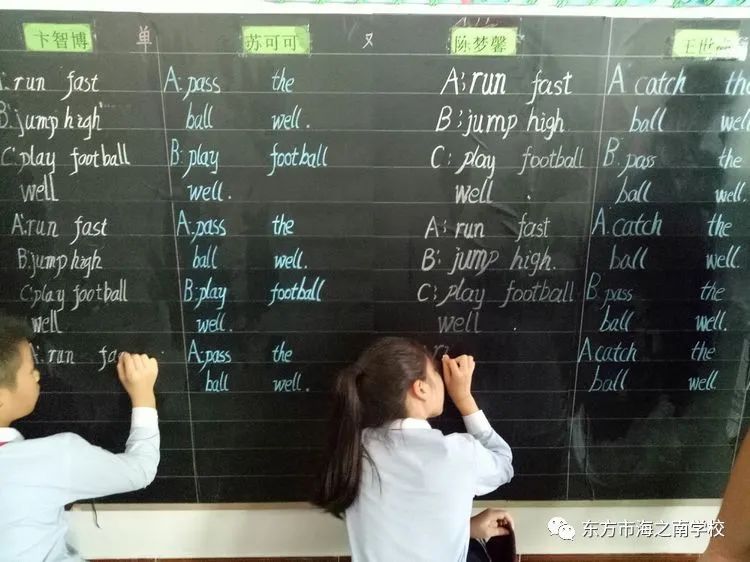 卞智博
A: run fast
B: jump high
C: play football
well
A: run fast
B: jump high
C: play football
well
A: run fa
单
苏可可
A: pass the
ball well.
B: play football
well.
A: pass the
ball well.
B: play football
well.
A: pass the
ball well.
陈梦馨
A: run fast
B: jump high
C: play football
well.
A: run fast
B: jump high.
C: play football
well.
王世
A. catch the
ball well
B. pass the
ball well.
A. catch the
ball well.
B. pass the
ball well.
A catch the
ball well.
东方市海之南学校